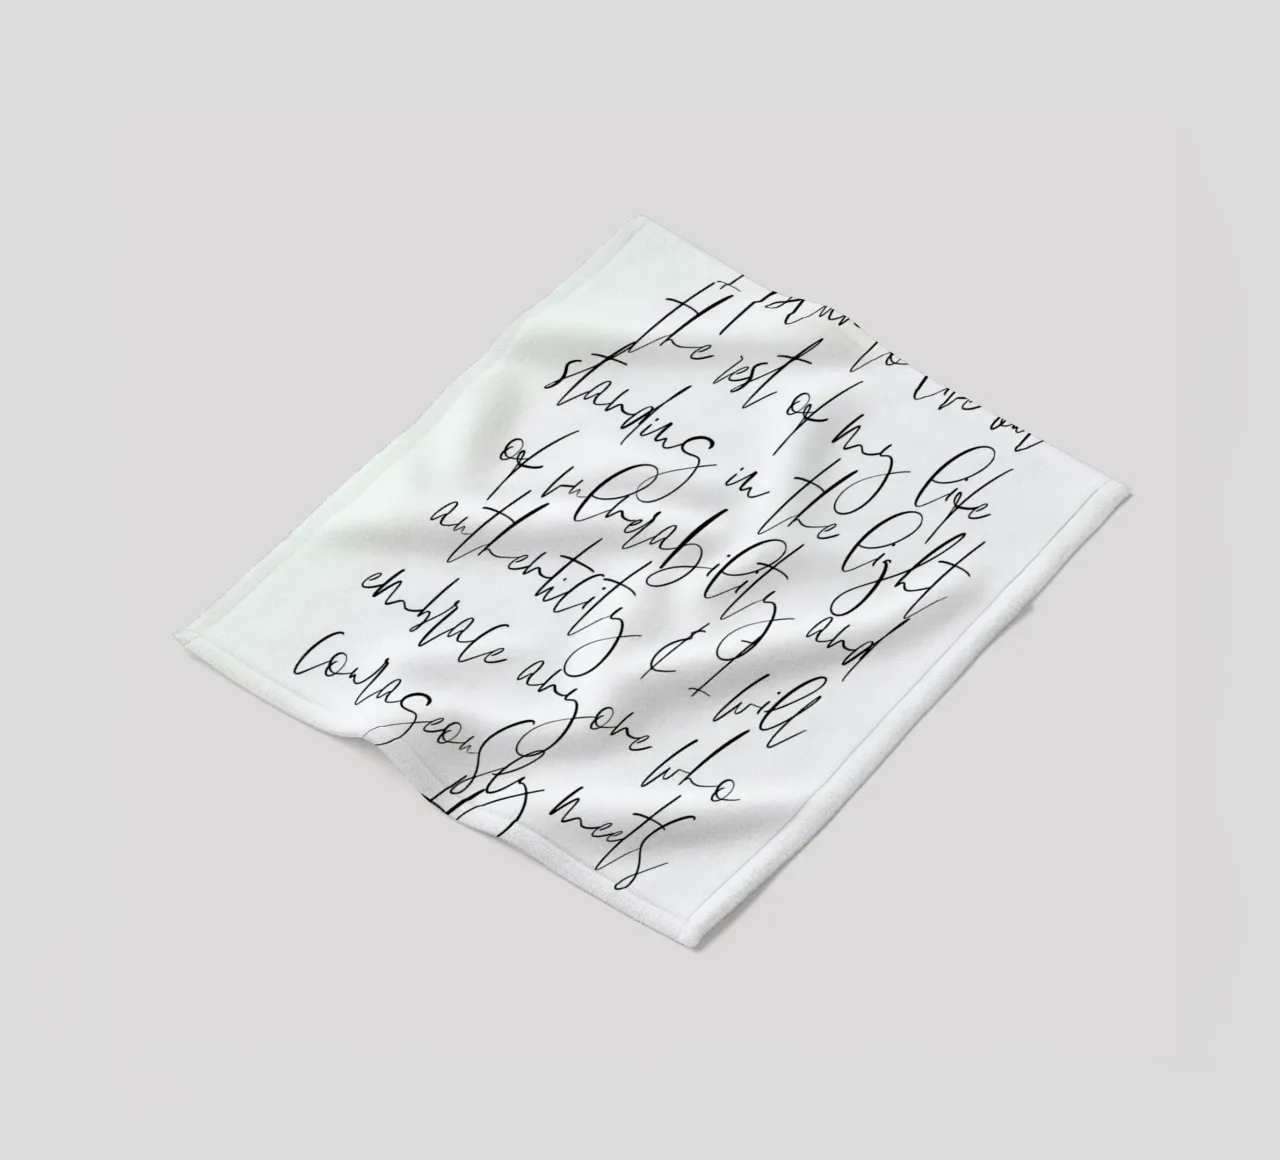 I plan to live out
the rest of my life
standing in the light
of vulnerability and
authenticity & I will
embrace anyone who
courageously meets